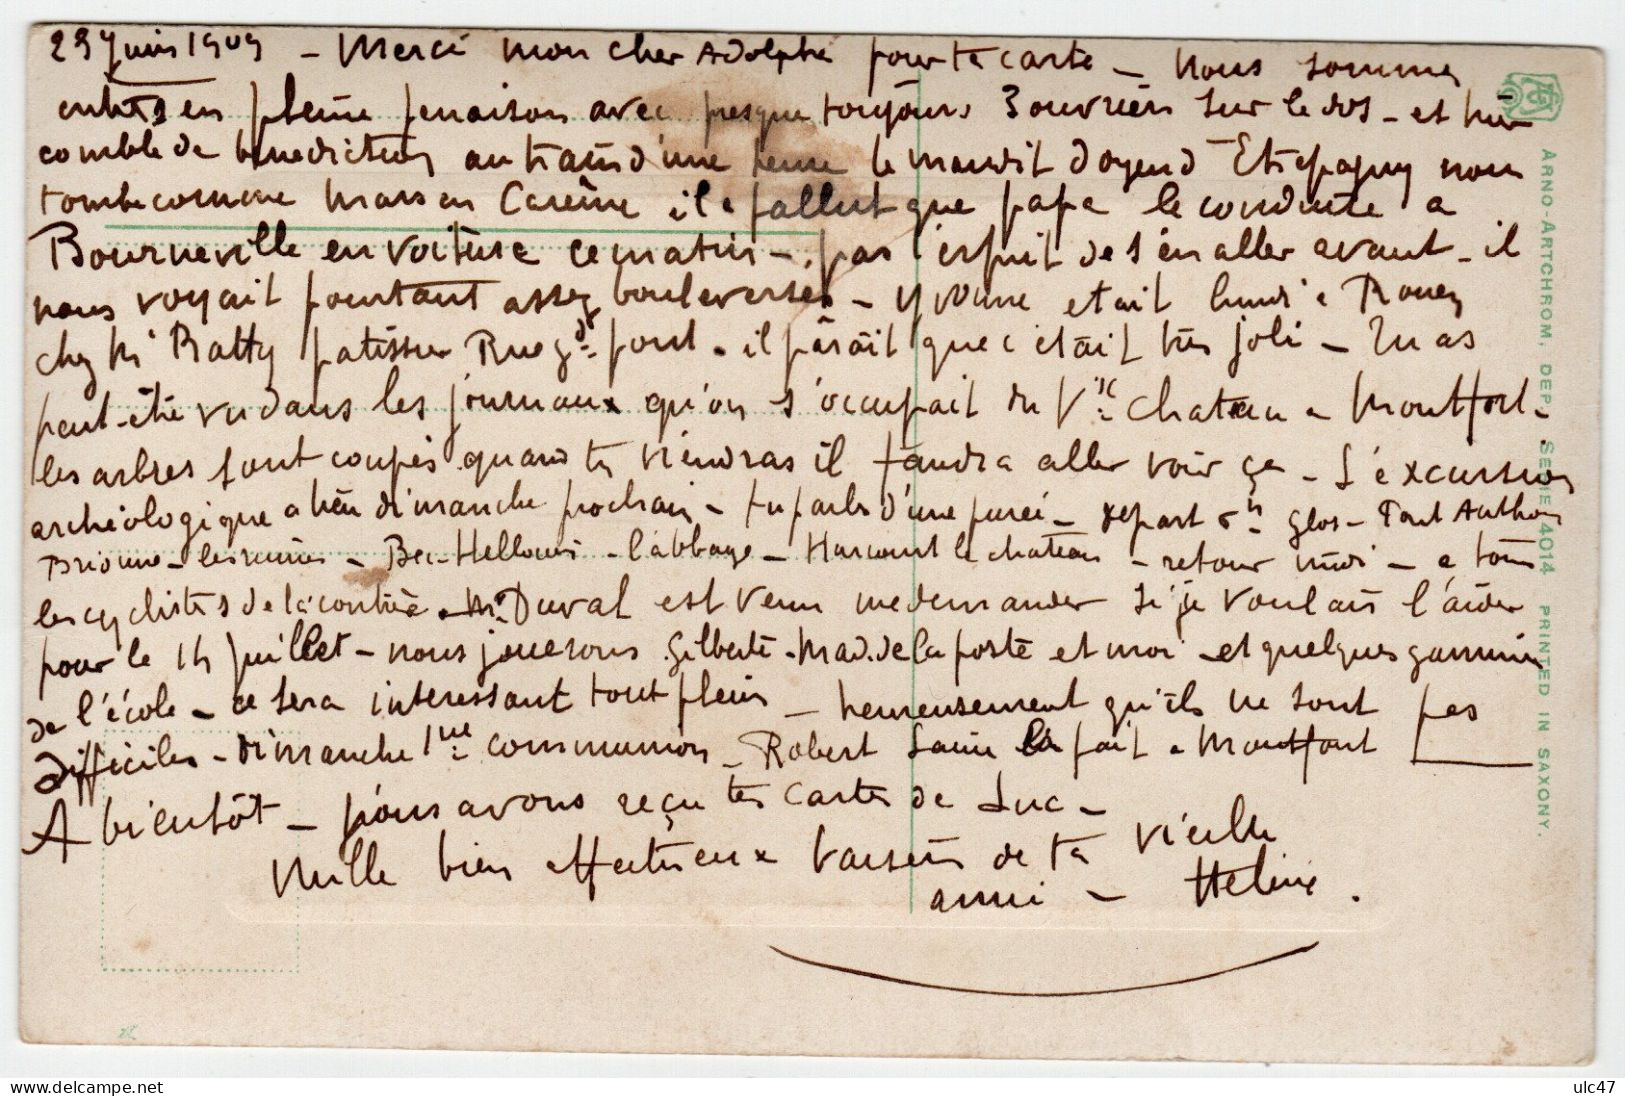 29 juin 1909 - Merci mon cher Adolphe pour ta carte - nous sommes
entrés en pleine fenaison avec presque toujours 3 ouvriers sur le dos - et hier
comble de bénédiction au train d'une heure le maudit doyen d'Etrepagny nous
tombe comme mars en Carême il a fallut que papa le conduise a
Bourneville en voiture ce matin - pas l'esprit de s'en aller avant - il
nous voyait pourtant assez bouleversés - Yvonne etait lundi a Rouen
chez Mr Batty patissier Rue gd pont - il parait que c'etait très joli - Tu as
peut-être vu dans les journaux qu'on s'occupait du Vx chateau a Montfort -
les arbres sont coupés quand tu viendras il faudra aller voir ça - L'excursion
archéologique a lieu dimanche prochain - tu parles d'une purée - départ 6h Glos - Pont Authou
Brionne - les ruines - Bec-Hellouin - l'abbaye - Harcourt le chateau - retour midi - a tous
les cyclistes de la contrée - Mr Duval est venu me demander si je voulais l'aider
pour le 14 Juillet - nous jouerons Gilberte - Mad. de la poste et moi - et quelques gamines
de l'école - ce sera interessant tout plein - heureusement qu'ils ne sont pas
difficiles - dimanche 1ère communion - Robert la fait a Montfort
A bientôt - nous avons reçu tes cartes de Luc -
Mille bien affectueux baisers de ta vieille
amie - Hélène.
ARNO-ARTCHROM, DEP., SERIE 4014 PRINTED IN SAXONY.
ulc47